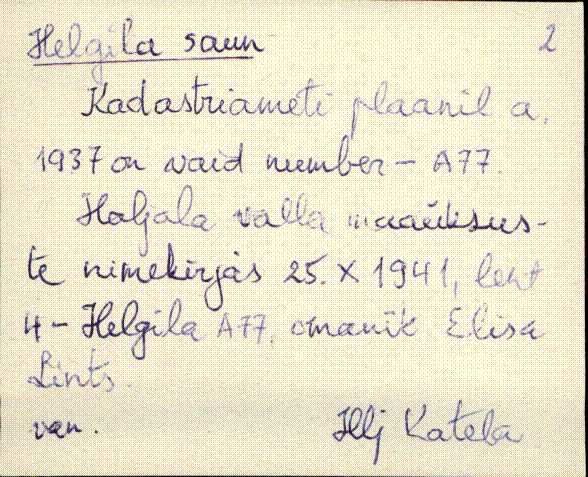 Helgila saun 2
Kadastriameti plaanil a.
1937 on vaid number - A77.
Haljala valla maaüksus-
te nimekirjas 25. X 1941, leht
4 - Helgila A77, omanik Elisa
Lints.
van. Hlj Katela